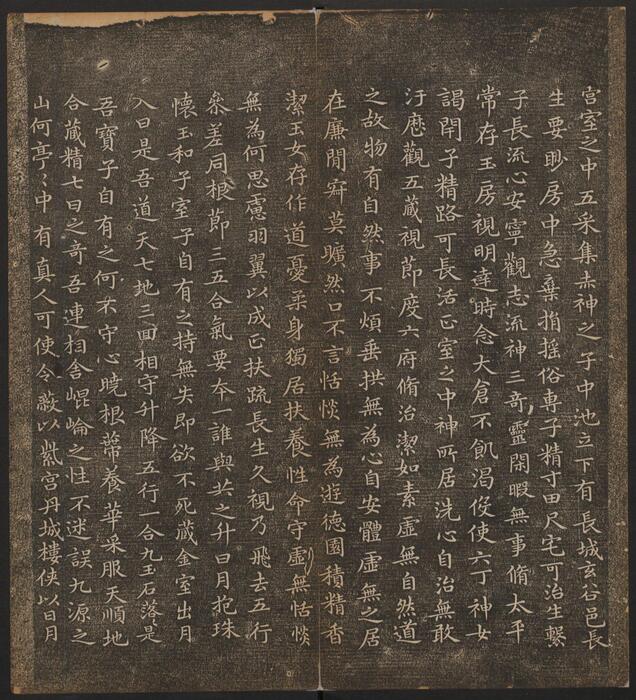 宫室之中五采集赤神之子中池立下有長城玄谷邑長
生要眇房中急棄捐搖俗専子精寸田尺宅可治生繫
子長流心安寧觀志流神三奇靈閑暇無事脩太平
常存玉房視明達時念大倉不飢渴伇使六丁神女
謁閇子精路可長活正室之中神所居洗心自治無敢
汙歴觀五藏視節度六府脩治潔如素虛無自然道
之故物有自然事不煩垂拱無為心自安體虛無之居
在廉間寂莫曠然口不言恬惔無為遊徳園積精香
潔玉女存作道憂柔身獨居扶養性命守虛無恬惔
無為何思慮羽翼以成正扶疏長生久視乃飛去五行
叅差同根節三五合氣要夲一誰與共之升日月抱珠
懐玉和子室子自有之持無失即欲不死藏金室出月
入日是吾道天七地三囬相守升降五行一合九玉石落是
吾寶子自有之何不守心曉根蔕養華采服天順地
合藏精七日之竒吾連相舎崐崘之性不迷誤九源之
山何亭〻中有真人可使令蔽以紫宫丹城樓俠以日月